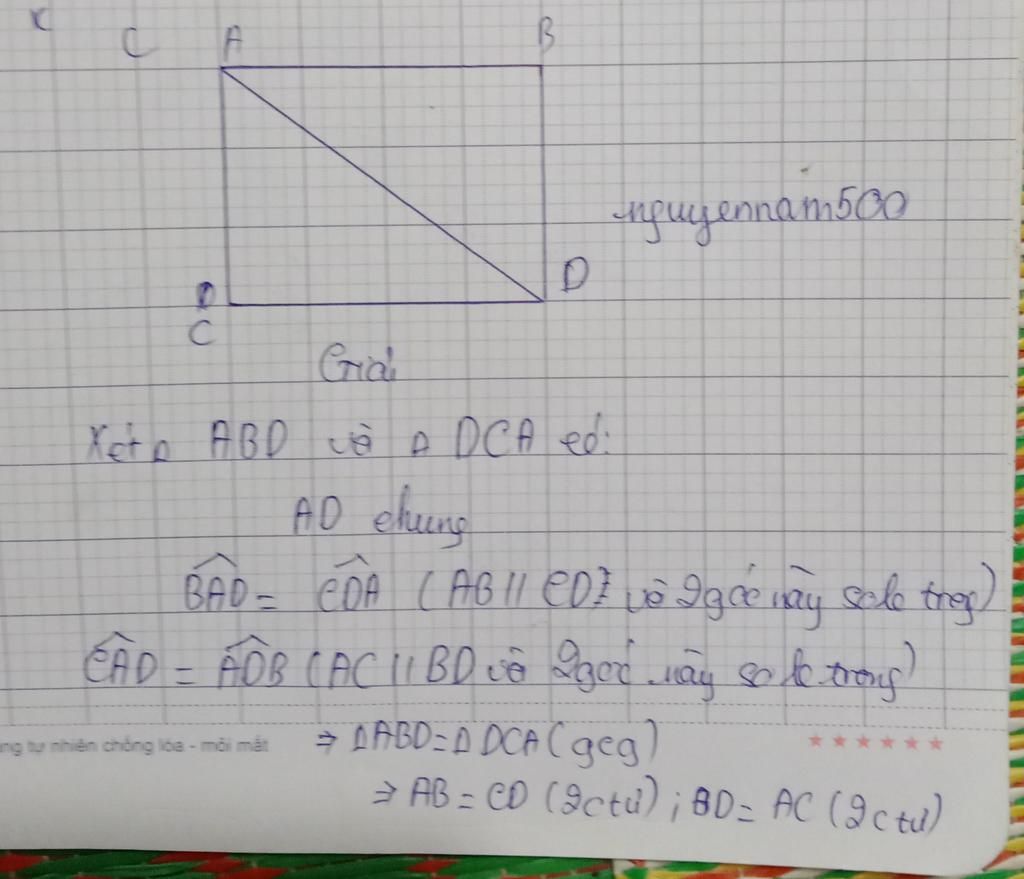 C A B
nguyennam500
D D
C
Giải
Xét Δ ABD và Δ DCA có:
AD chung
BAD = CDA (AB // CD và 2 góc này sole trog)
CAD = ADB (AC // BD và 2 góc này so le trong)
ng tự nhiên chống lóa - mỏi mắt
⇒ ΔABD = Δ DCA (gcg)
⇒ AB = CD (2ctứ) ; BD = AC (2ctứ)